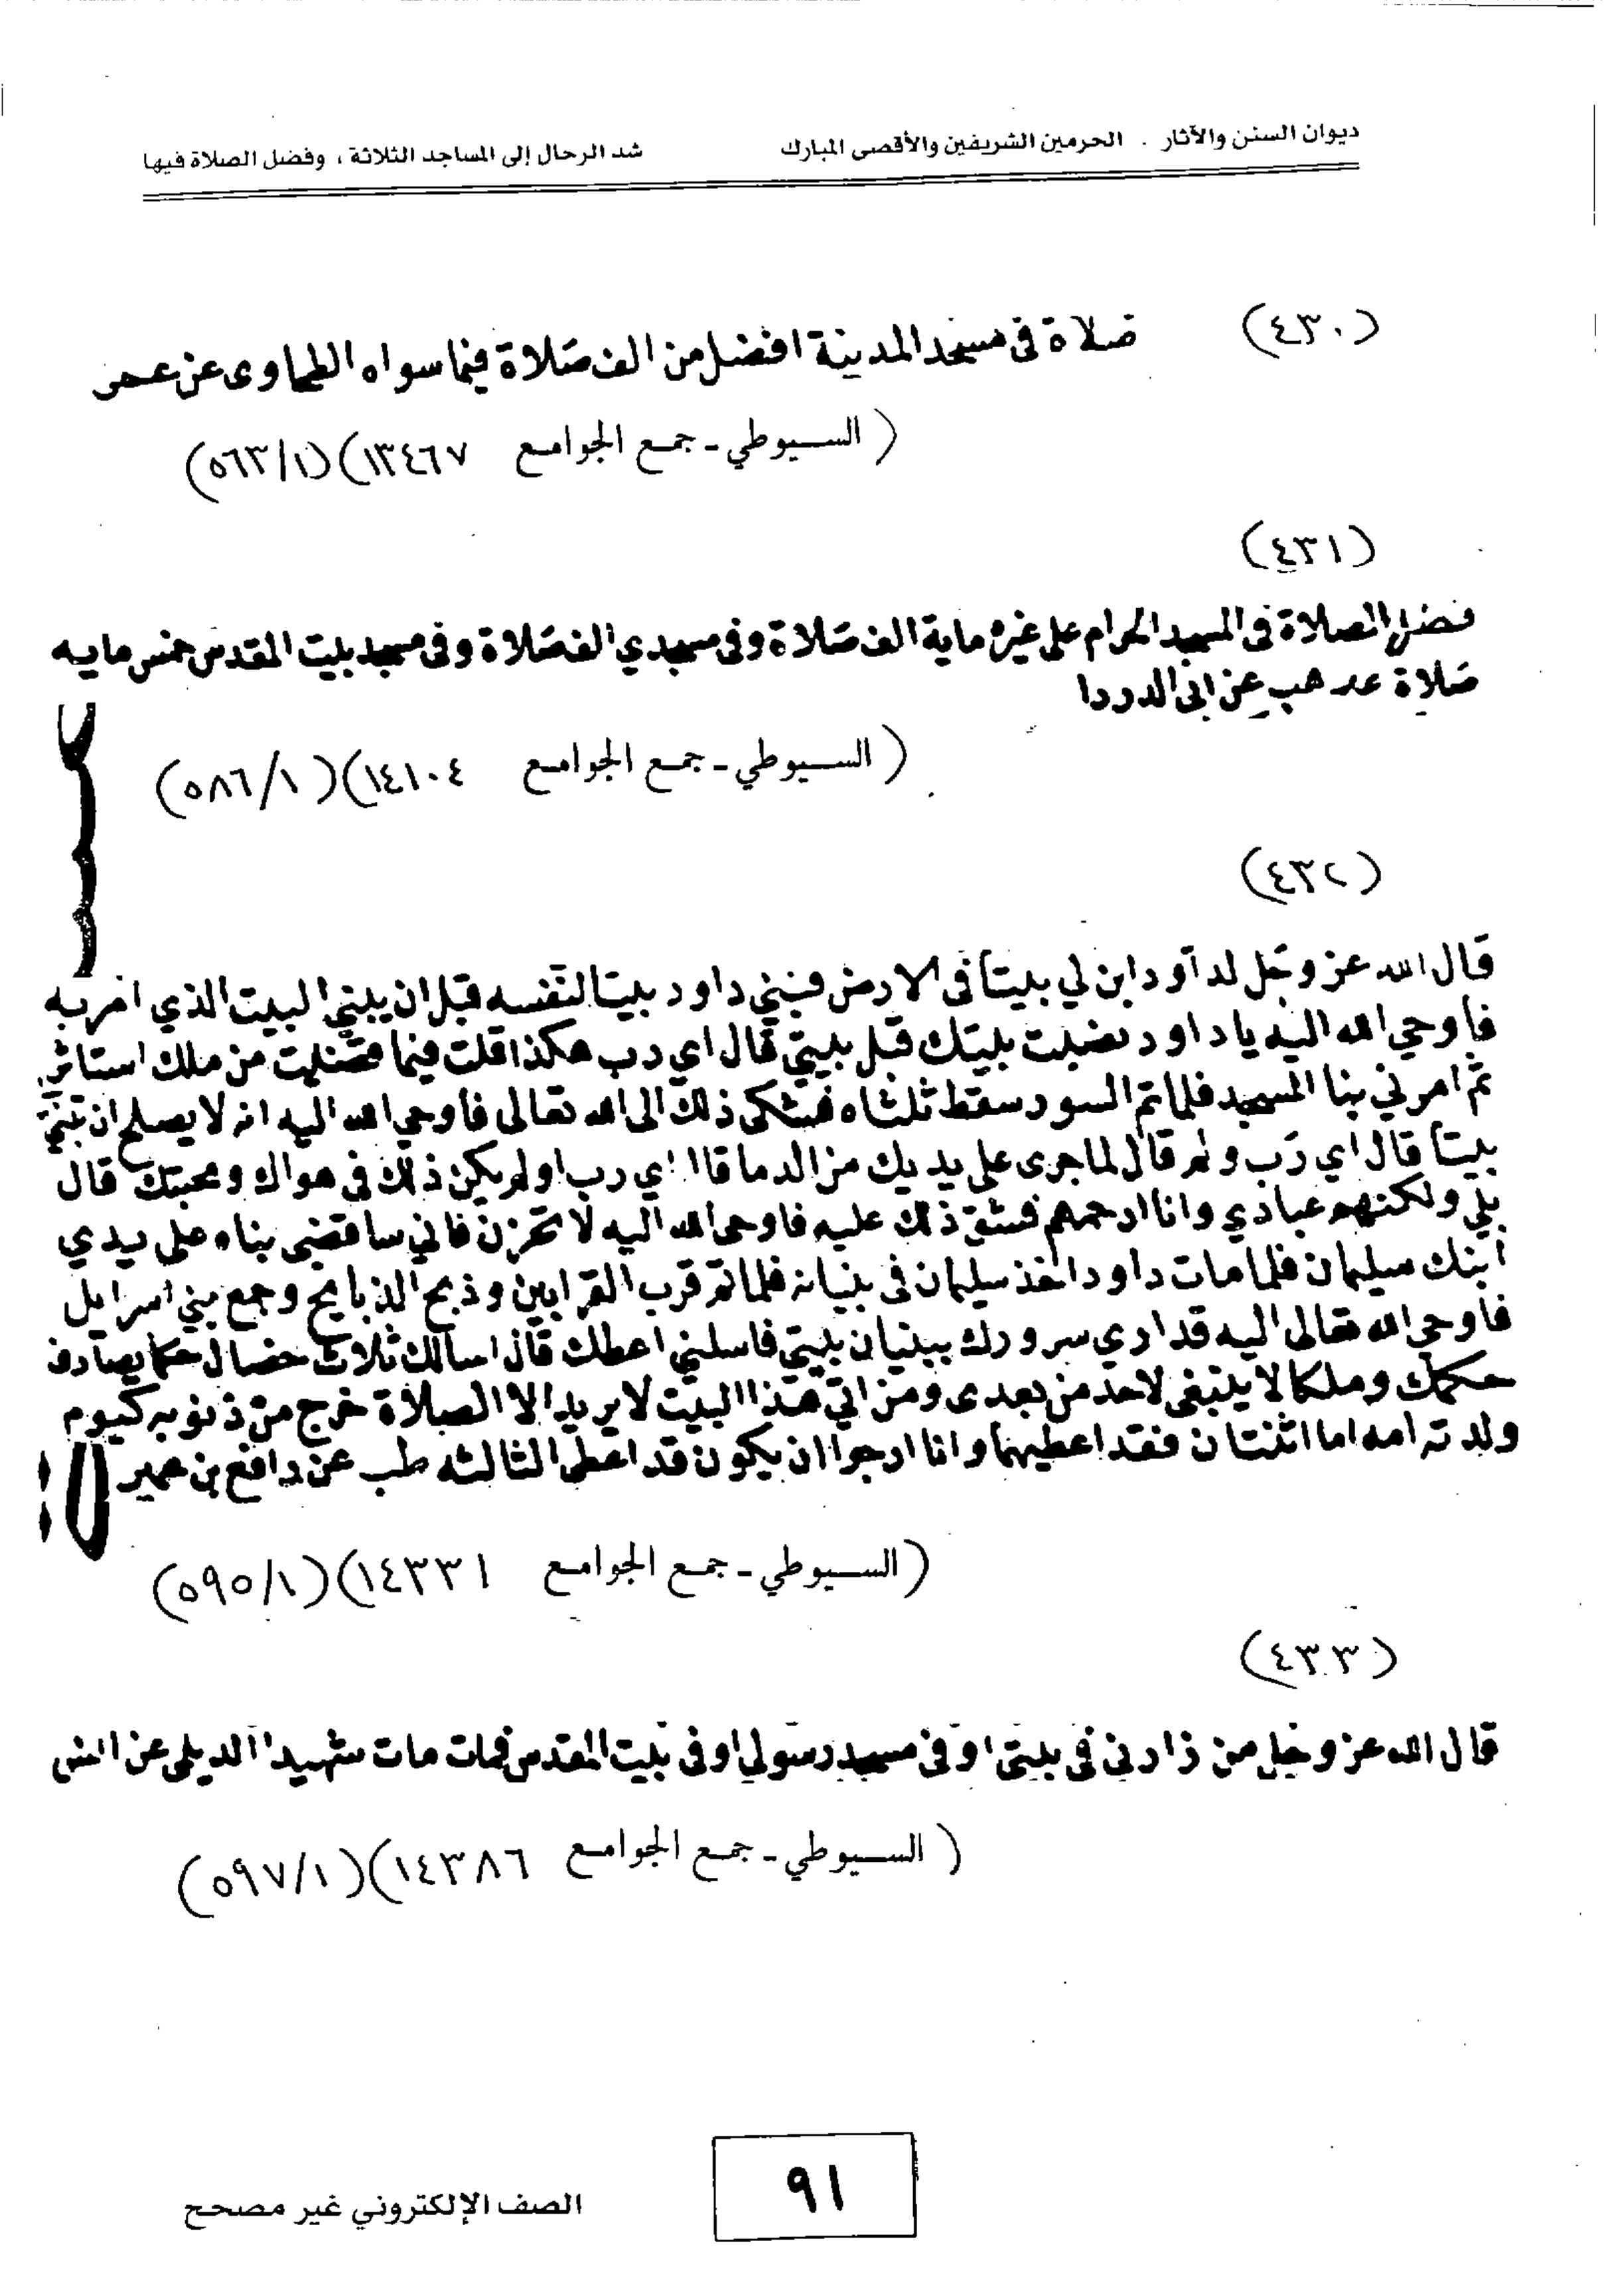 ديوان السنن والآثار . الحرمين الشريفين والأقصى المبارك شد الرحال إلى المساجد الثلاثة ، وفضل الصلاة فيها
(٤٣٠) صلاة فى مسجد المدينة افضل من الف صلاة فيما سواه الطحاوى عن عمر
( السيوطي - جمع الجوامع ١٣٤٦٧)(٥٦٣/١)
(٤٣١)
فضل الصلاة فى المسجد الحرام على غيره ماية الف صلاة وفى مسجدي الف صلاة وفى مسجد بيت المقدس خمس مايه
صلاة عد هب عن ابى الدردا
( السيوطي - جمع الجوامع ١٤١٠٤)(٥٨٦/١)
(٤٣٢)
قال الله عز وجل لداود ابن لي بيتا فى الارض فبنى داود بيتا لنفسه قبل ان يبنى البيت الذي امر به
فاوحي الله اليه ياداود نصبت بيتك قبل بيتي قال اي رب هكذا قلت فيما قضيت من ملك استاثر
ثم امر في بنا المسجد فلما تم السور سقط ثلثاه فشكى ذلك الى الله تعالى فاوحي الله اليه انه لا يصلح ان تبنى
بيتا قال اي رب ولم قال لما جرى على يديك من الدما قال اي رب اولم يكن ذلك فى هواك ومحبتك قال
بلي ولكنهم عبادي وانا ارحمهم فشق ذلك عليه فاوحى الله اليه لا تحزن فاني ساقضى بناه على يدي
ابنك سليمان فلما مات داود اخذ سليمان فى بنيانه فلما تم قرب القرابين وذبح الذبايح وجمع بني اسرايل
فاوحي الله تعالى اليه قد اري سرورك ببنيان بيتي فاسلني اعطك قال اسالك ثلاث خصال حكما يصادف
حكمك وملكا لا ينبغى لاحد من بعدى ومن اتى هذا البيت لا يريد الا الصلاة خرج من ذنوبه كيوم
ولدته امه اما اثنتان فقد اعطيهما وانا ارجوا ان يكون قد اعطى الثالثه طب عن رافع بن عمير
( السيوطي - جمع الجوامع ١٤٣٣١)(٥٩٥/١)
(٤٣٣)
قال الله عز وجل من زارني فى بيتى او فى مسجد رسولي او فى بيت المقدس فمات مات شهيدا الديلمى عن انس
( السيوطي - جمع الجوامع ١٤٣٨٦)(٥٩٧/١)
٩١
الصف الإلكتروني غير مصحح